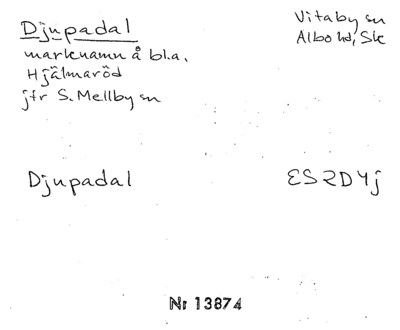 Djupadal
Vitaby sn
Albo hd, Sk
marknamn å bl.a.
Hjälmaröd
jfr S. Mellby sn
Djupadal
ES2D4j
Nr 13874